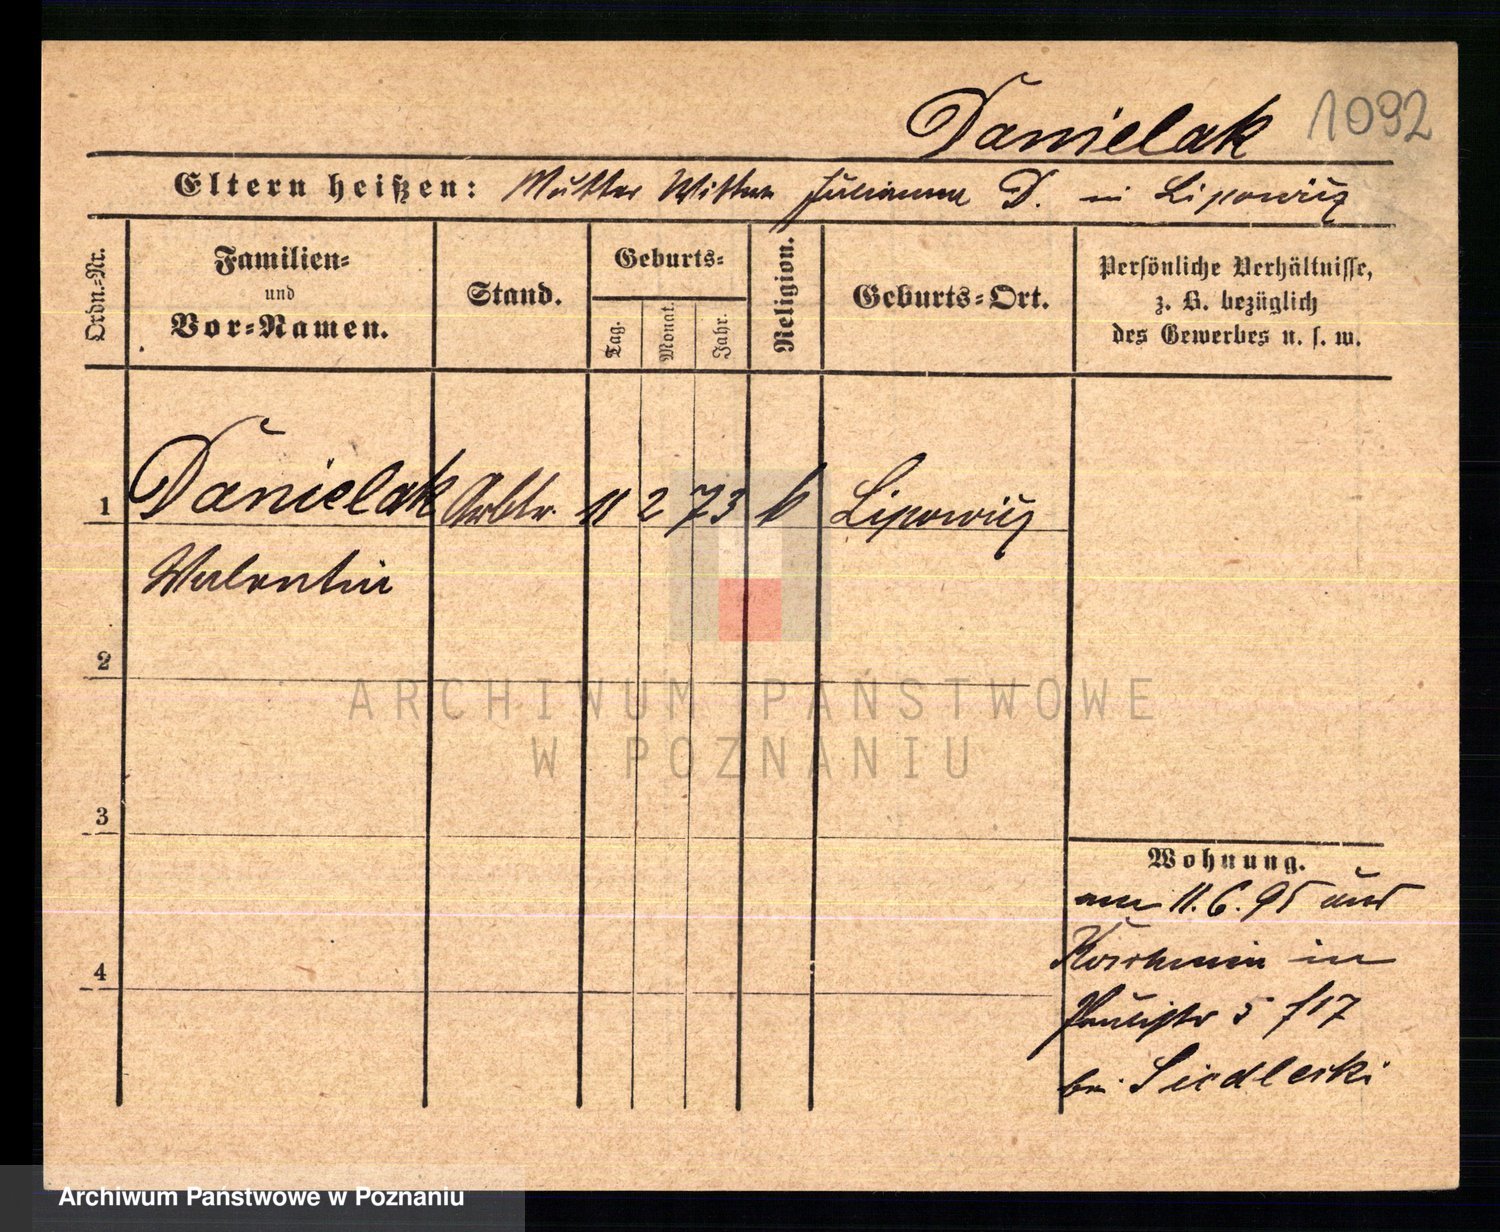 1092
Danielak
Eltern heißen: Mutter Witwe Julianna D. in Lipowiec
Ordn.-Nr.
Familien-
und
Vor-Namen.
Stand.
Geburts-
Tag.
Monat.
Jahr.
Religion.
Geburts-Ort.
Persönliche Verhältnisse,
z. B. bezüglich
des Gewerbes u. s. w.
1 Danielak Arbtr. 11 2 73 k Lipowiec
Valentin
2
ARCHIWUM PAŃSTWOWE
W POZNANIU
3
Wohnung.
am 11.6.95 aus
Koschmin in
4
5 f 17
bei Siedlecki
Archiwum Państwowe w Poznaniu